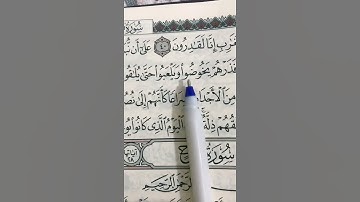 سُورَةُ
غَٰرِبِ إِنَّا لَقَٰدِرُونَ ٤٠ عَلَىٰٓ أَن نُّبَ
فَذَرْهُمْ يَخُوضُوا۟ وَيَلْعَبُوا۟ حَتَّىٰ يُلَٰقُوا۟
مِنَ ٱلْأَجْدَا رَاعًا كَأَنَّهُمْ إِلَىٰ نُصُ
هَقُهُمْ ذِلَّةٌ ٱلْيَوْمُ ٱلَّذِى كَانُوا۟ يُو
سُورَةُ ح
رَّحْمَٰنِ ٱلرَّحِيمِ